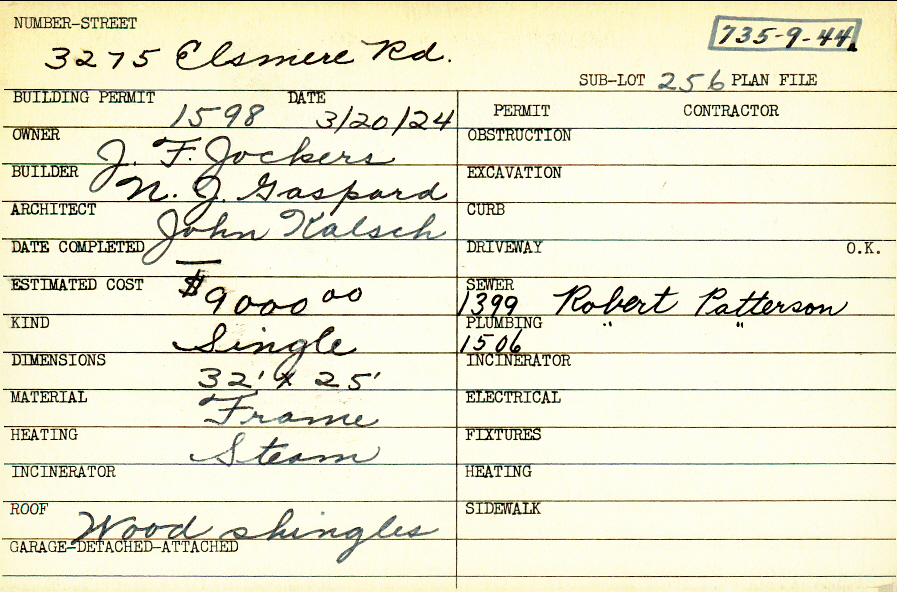 NUMBER-STREET
3275 Elsmere Rd.
735-9-44
SUB-LOT 256 PLAN FILE
BUILDING PERMIT 1598 DATE 3/20/24
OWNER J. F. Jockers
BUILDER N. J. Gaspard
ARCHITECT John Kalsch
DATE COMPLETED —
ESTIMATED COST $9000 00
KIND Single
DIMENSIONS 32' x 25'
MATERIAL Frame
HEATING Steam
INCINERATOR
ROOF Wood shingles
GARAGE-DETACHED-ATTACHED
PERMIT CONTRACTOR
OBSTRUCTION
EXCAVATION
CURB
DRIVEWAY O.K.
SEWER
1399 Robert Patterson
PLUMBING " "
1506
INCINERATOR
ELECTRICAL
FIXTURES
HEATING
SIDEWALK